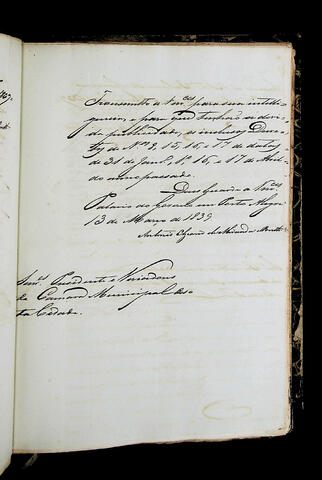 Transmitto a Vm.ces para sua intelli-
gencia, e para terem a devi-
da publicidade, os inclusos Decre-
tos de Nos 15, 16, e 17 de datas
de 31 de Janr.o 16, e 17 de
do anno passado.
Deos Guarde a Vm.ces
Palacio do Governo em Porto Alegre
13 de Março de 1839
Antonio
Snr.es Presidente e Vereadores
da Camara Municipal des-
ta Cidade.